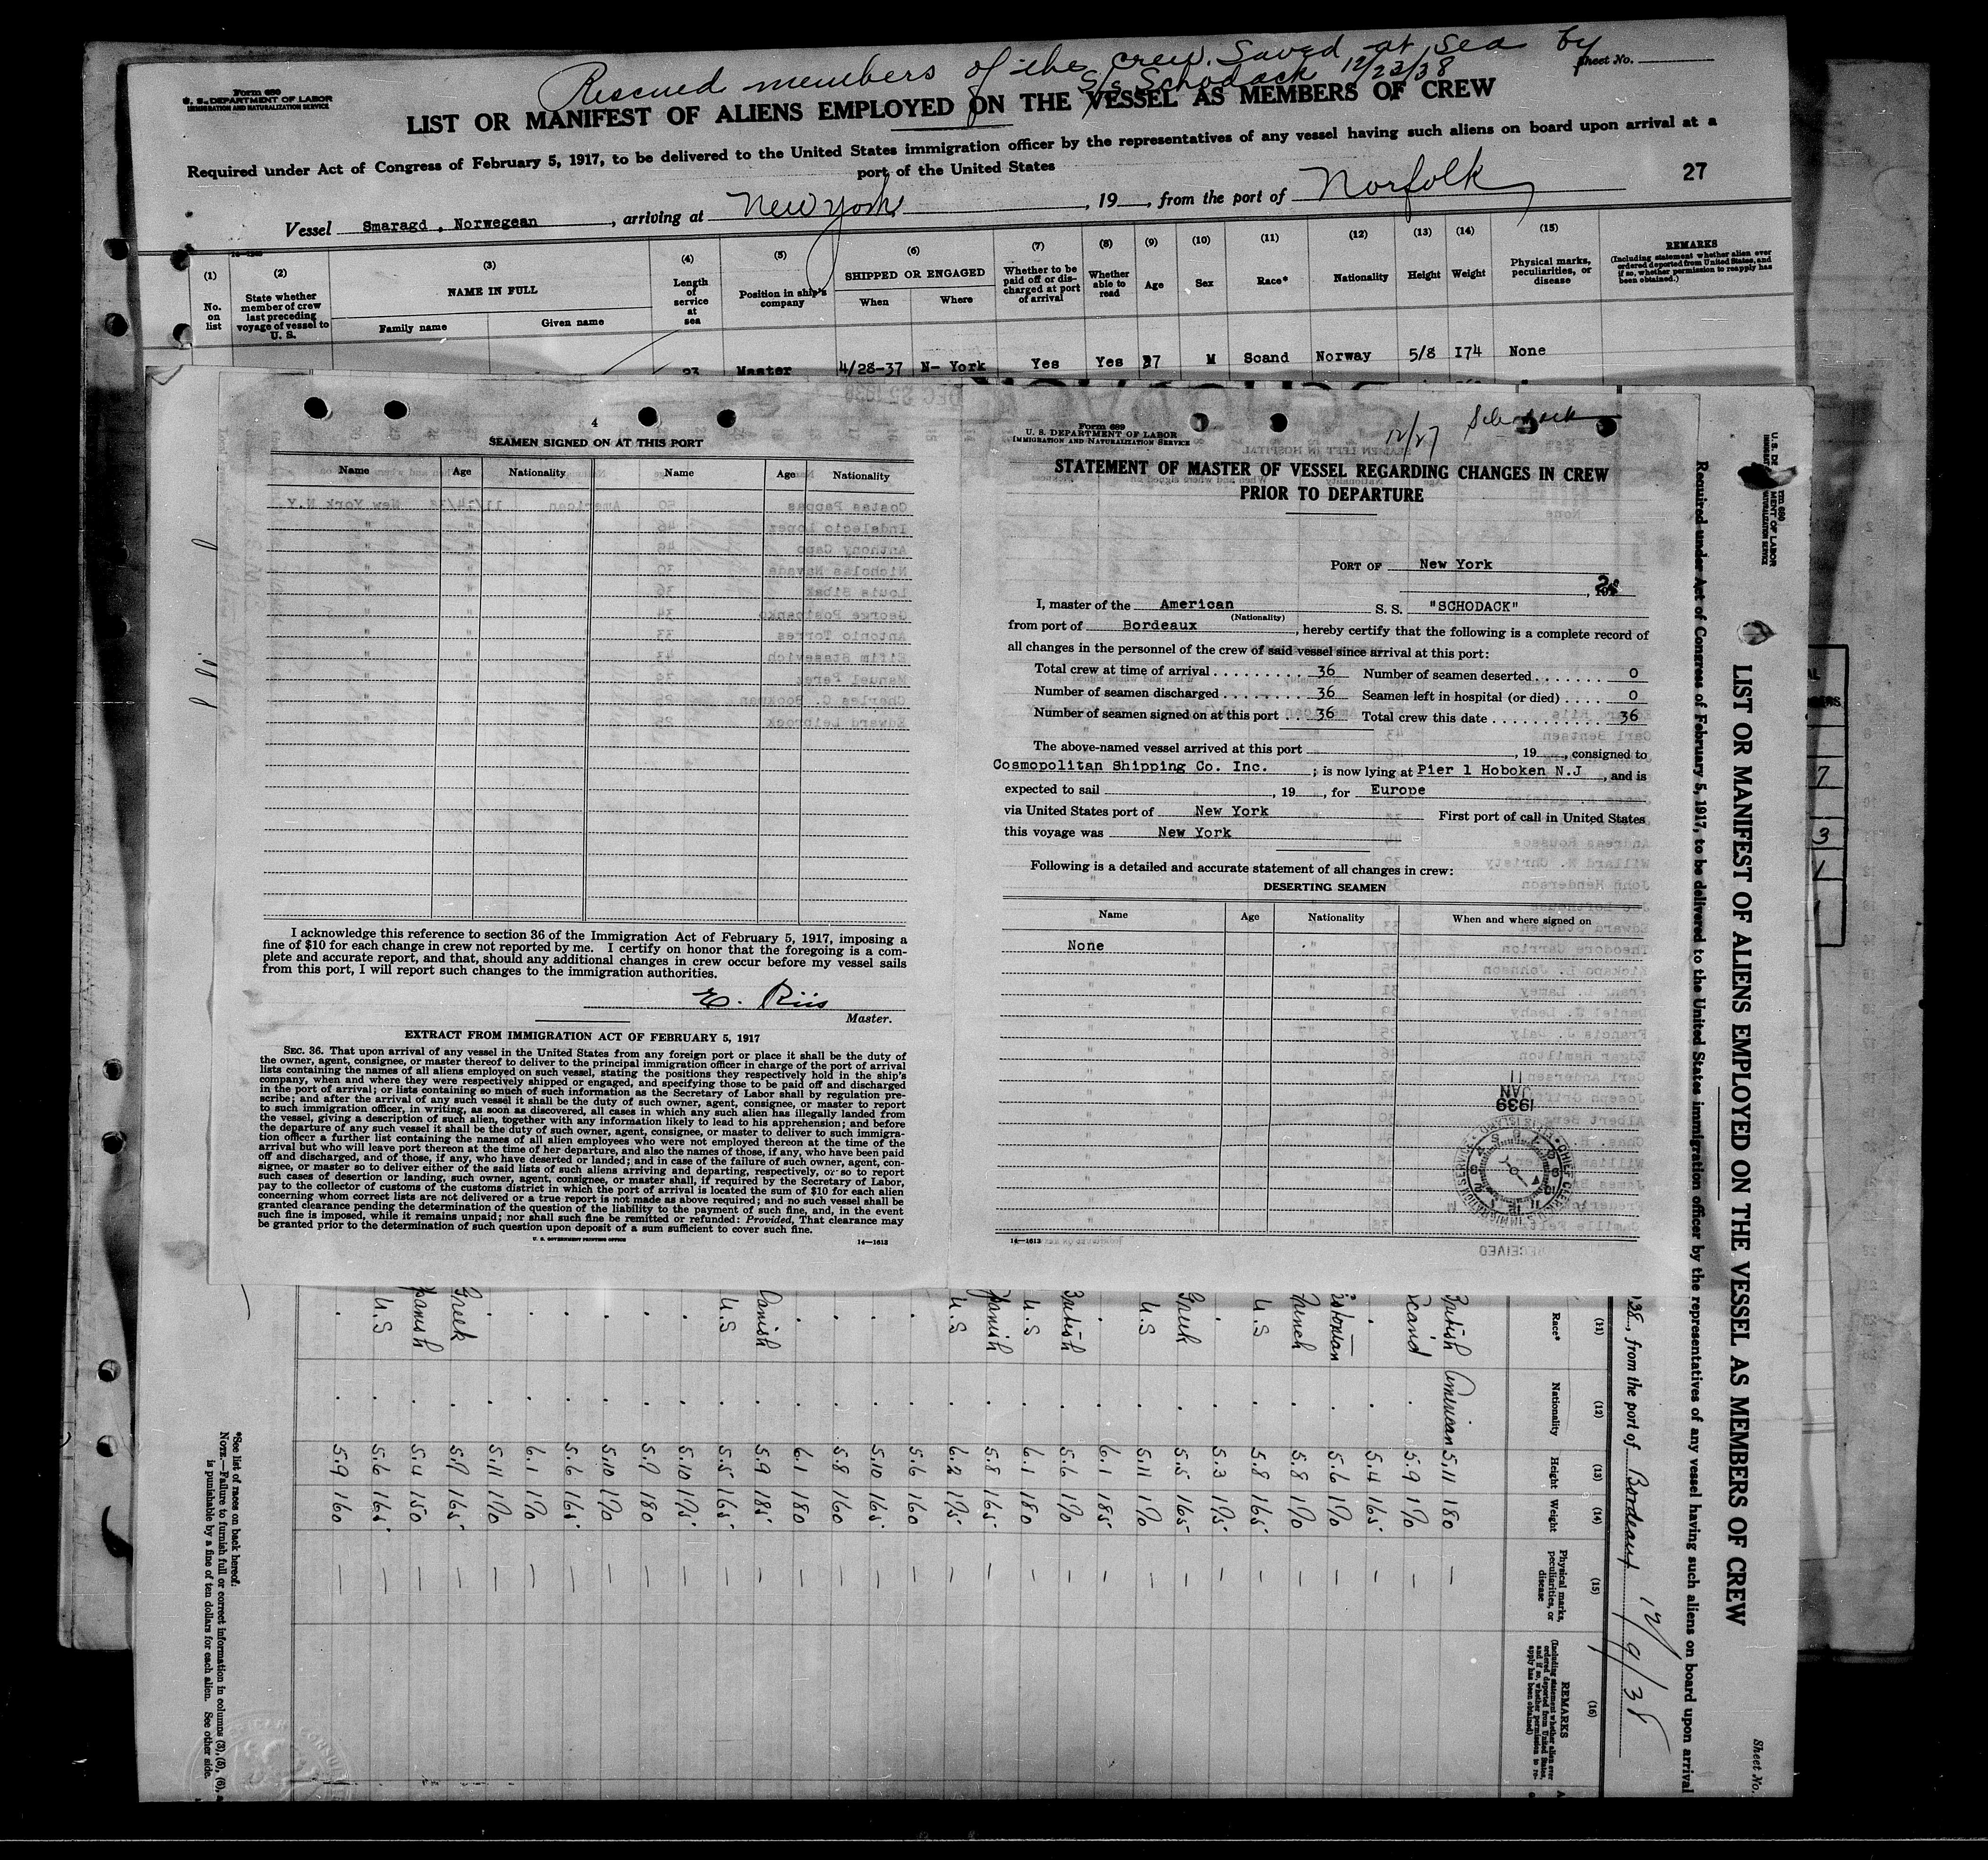 Rescued members of the crew. Saved at sea by
S/s Schodack 12/23/38
Sheet No.
Form 689
U. S. DEPARTMENT OF LABOR
IMMIGRATION AND NATURALIZATION SERVICE
LIST OR MANIFEST OF ALIENS EMPLOYED ON THE VESSEL AS MEMBERS OF CREW
Required under Act of Congress of February 5, 1917, to be delivered to the United States immigration officer by the representatives of any vessel having such aliens on board upon arrival at a
port of the United States
27
Vessel Smaragd , Norwegean , arriving at New York , 19 , from the port of Norfolk
(1) (2) (3) (4) (5) (6) (7) (8) (9) (10) (11) (12) (13) (14) (15)
No. on list
State whether member of crew last preceding voyage of vessel to U. S.
NAME IN FULL
Family name Given name
Length of service at sea
Position in ship's company
SHIPPED OR ENGAGED
When Where
Whether to be paid off or discharged at port of arrival
Whether able to read
Age Sex Race* Nationality Height Weight
Physical marks, peculiarities, or disease
REMARKS
(Including statement whether alien ever ordered deported from United States, and if so, whether permission to reapply has been obtained.)
23 Master 4/28-37 N- York Yes Yes 37 M Scand Norway 5/8 I74 None
4
SEAMEN SIGNED ON AT THIS PORT
Name Age Nationality Name Age Nationality
I acknowledge this reference to section 36 of the Immigration Act of February 5, 1917, imposing a
fine of $10 for each change in crew not reported by me. I certify on honor that the foregoing is a com-
plete and accurate report, and that, should any additional changes in crew occur before my vessel sails
from this port, I will report such changes to the immigration authorities.
E. Riis
Master.
EXTRACT FROM IMMIGRATION ACT OF FEBRUARY 5, 1917
SEC. 36. That upon arrival of any vessel in the United States from any foreign port or place it shall be the duty of
the owner, agent, consignee, or master thereof to deliver to the principal immigration officer in charge of the port of arrival
lists containing the names of all aliens employed on such vessel, stating the positions they respectively hold in the ship's
company, when and where they were respectively shipped or engaged, and specifying those to be paid off and discharged
in the port of arrival; or lists containing so much of such information as the Secretary of Labor shall by regulation pre-
scribe; and after the arrival of any such vessel it shall be the duty of such owner, agent, consignee, or master to report
to such immigration officer, in writing, as soon as discovered, all cases in which any such alien has illegally landed from
the vessel, giving a description of such alien, together with any information likely to lead to his apprehension; and before
the departure of any such vessel it shall be the duty of such owner, agent, consignee, or master to deliver to such immigra-
tion officer a further list containing the names of all alien employees who were not employed thereon at the time of the
arrival but who will leave port thereon at the time of her departure, and also the names of those, if any, who have been paid
off and discharged, and of those, if any, who have deserted or landed; and in case of the failure of such owner, agent, con-
signee, or master so to deliver either of the said lists of such aliens arriving and departing, respectively, or so to report
such cases of desertion or landing, such owner, agent, consignee, or master shall, if required by the Secretary of Labor,
pay to the collector of customs of the customs district in which the port of arrival is located the sum of $10 for each alien
concerning whom correct lists are not delivered or a true report is not made as above required; and no such vessel shall be
granted clearance pending the determination of the question of the liability to the payment of such fine, and, in the event
such fine is imposed, while it remains unpaid; nor shall such fine be remitted or refunded: Provided, That clearance may
be granted prior to the determination of such question upon deposit of a sum sufficient to cover such fine.
U. S. GOVERNMENT PRINTING OFFICE 14—1613
12/27 Schodack
Form 689
U. S. DEPARTMENT OF LABOR
IMMIGRATION AND NATURALIZATION SERVICE
STATEMENT OF MASTER OF VESSEL REGARDING CHANGES IN CREW
PRIOR TO DEPARTURE
PORT OF New York
I, master of the American S. S. "SCHODACK"
(Nationality)
from port of Bordeaux , hereby certify that the following is a complete record of
all changes in the personnel of the crew of said vessel since arrival at this port:
Total crew at time of arrival 36 Number of seamen deserted 0
Number of seamen discharged 36 Seamen left in hospital (or died) 0
Number of seamen signed on at this port 36 Total crew this date 36
The above-named vessel arrived at this port , 19 , consigned to
Cosmopolitan Shipping Co. Inc. ; is now lying at Pier 1 Hoboken N.J , and is
expected to sail , 19 , for Europe
via United States port of New York First port of call in United States
this voyage was New York
Following is a detailed and accurate statement of all changes in crew:
DESERTING SEAMEN
Name Age Nationality When and where signed on
None
14—1613
RECEIVED
JAN 11 1939
LIST OR MANIFEST OF ALIENS EMPLOYED ON THE VESSEL AS MEMBERS OF CREW
Required under Act of Congress of February 5, 1917, to be delivered to the United States immigration officer by the representatives of any vessel having such aliens on board upon arrival
Sheet No.
38, from the port of Bordeaux 12/9/38
(11) (12) (13) (14) (15) (16)
Race* Nationality Height Weight Physical marks, peculiarities, or disease
REMARKS
(Including statement whether alien ever ordered deported from United States, and if so, whether permission to reapply has been obtained)
British American 5.11 180 —
Scand . 5.9 170 —
. . 5.4 165 —
Estonian . 5.6 170 —
French . 5.8 170 —
U.S . 5.8 165 —
. . 5.3 175 —
Greek . 5.5 165 —
U.S . 5.11 170 —
. . 6.1 185 —
British . 5.6 170 —
U.S . 6.1 180 —
Spanish . 5.8 165 —
U.S . 6.2 175 —
. . 5.6 160 —
. . 5.10 165 —
. . 5.8 160 —
. . 6.1 180 —
Danish . 5.9 185 —
U.S . 5.5 165 —
. . 5.10 175 —
. . 5.7 180 —
. . 5.10 170 —
. . 5.6 165 —
. . 6.1 170 —
. . 5.11 170 —
Greek . 5.7 165 —
Spanish . 5.4 150 —
U.S . 5.6 165 —
. . 5.9 160 —
*See list of races on back hereof.
NOTE.—Failure to furnish full or correct information in columns (3), (5), (6),
is punishable by a fine of ten dollars for each alien. See other side.
7
3
1